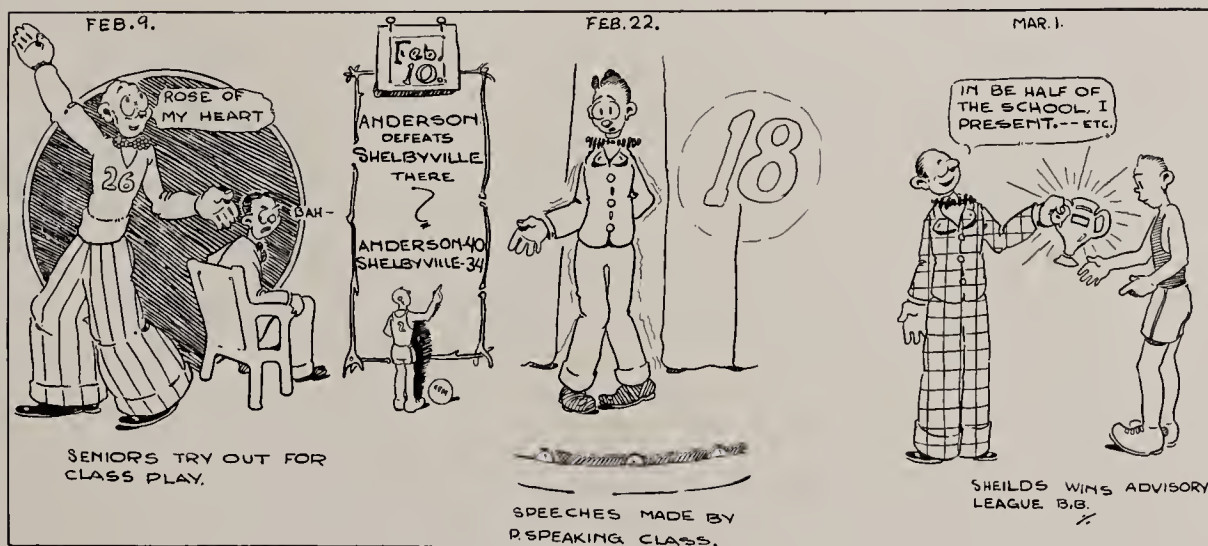 FEB. 9.
ROSE OF
MY HEART
26
BAH-
SENIORS TRY OUT FOR
CLASS PLAY.
Feb.
10.
ANDERSON
DEFEATS
SHELBYVILLE
THERE
ANDERSON-40
SHELBYVILLE-34
2
FEB. 22.
18
SPEECHES MADE BY
P. SPEAKING CLASS.
MAR. 1.
IN BE HALF OF
THE SCHOOL, I
PRESENT.--- ETC.
SHEILDS WINS ADVISORY
LEAGUE B.B.